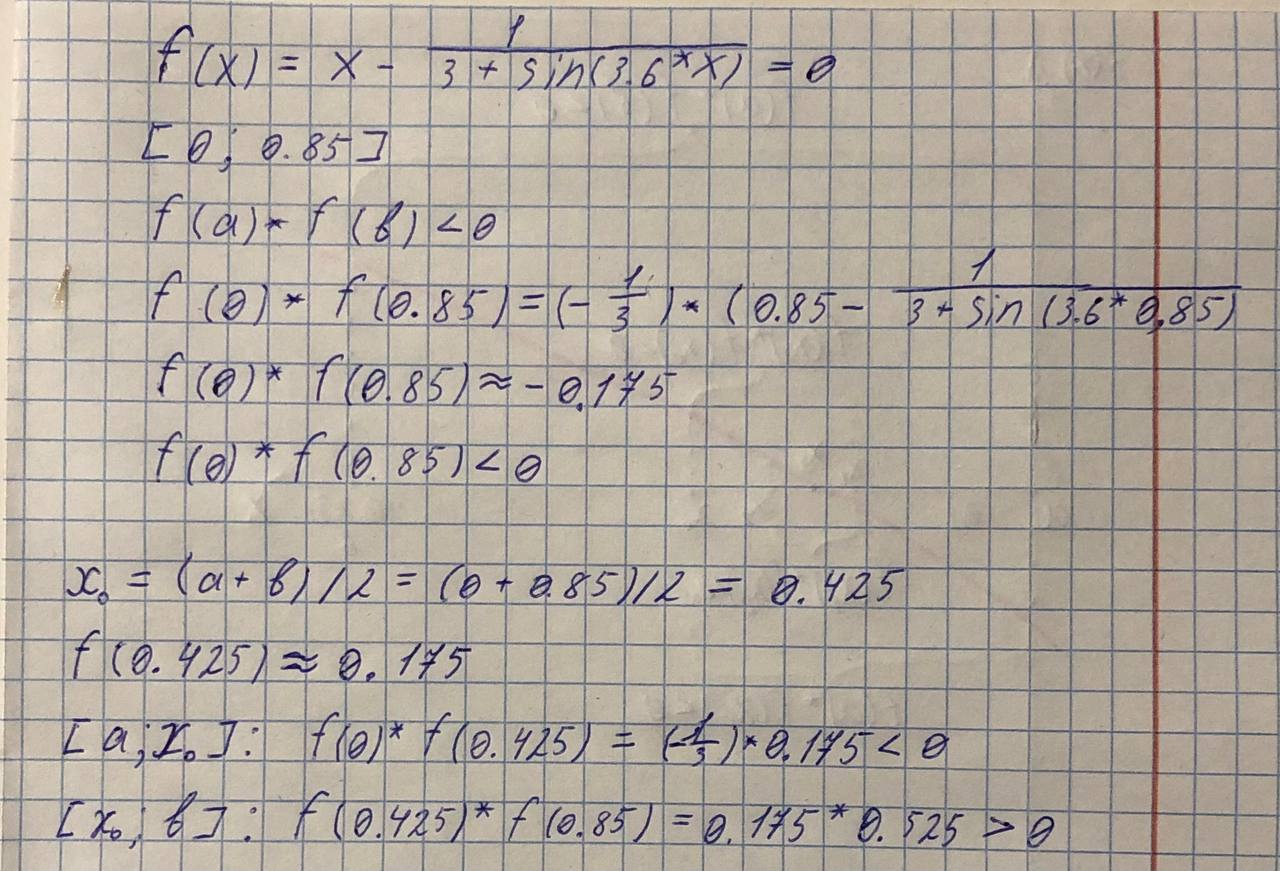 f(x) = x - 1/(3 + sin(3.6*x)) = 0
[0; 0.85]
f(a)*f(в) < 0
f(0)*f(0.85) = (-1/3)*(0.85 - 1/(3 + sin(3.6*0,85)
f(0)*f(0.85) ≈ -0.175
f(0)*f(0.85) < 0
x₀ = (a + в)/2 = (0 + 0.85)/2 = 0.425
f(0.425) ≈ 0.175
[a; x₀]: f(0)*f(0.425) = (-1/3)*0.175 < 0
[x₀; в]: f(0.425)*f(0.85) = 0.175*0.525 > 0